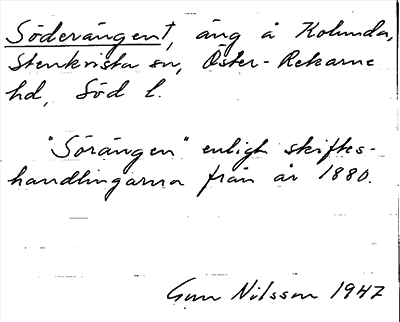 Söderängent, äng å Kolunda,
Stenkvista sn, Öster-Rekarne
hd, Söd l.
"Sörängen" enligt skiftes-
handlingarna från år 1880.
Gun Nilsson 1947